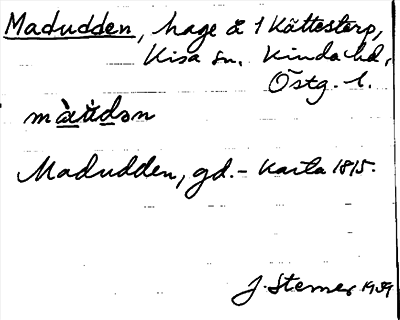 Madudden, hage å 1 Kättestorp,
Kisa sn, Kinda hd,
Östg. l.
Madudden, gd. - Karta 1815.
J. Sterner 1939